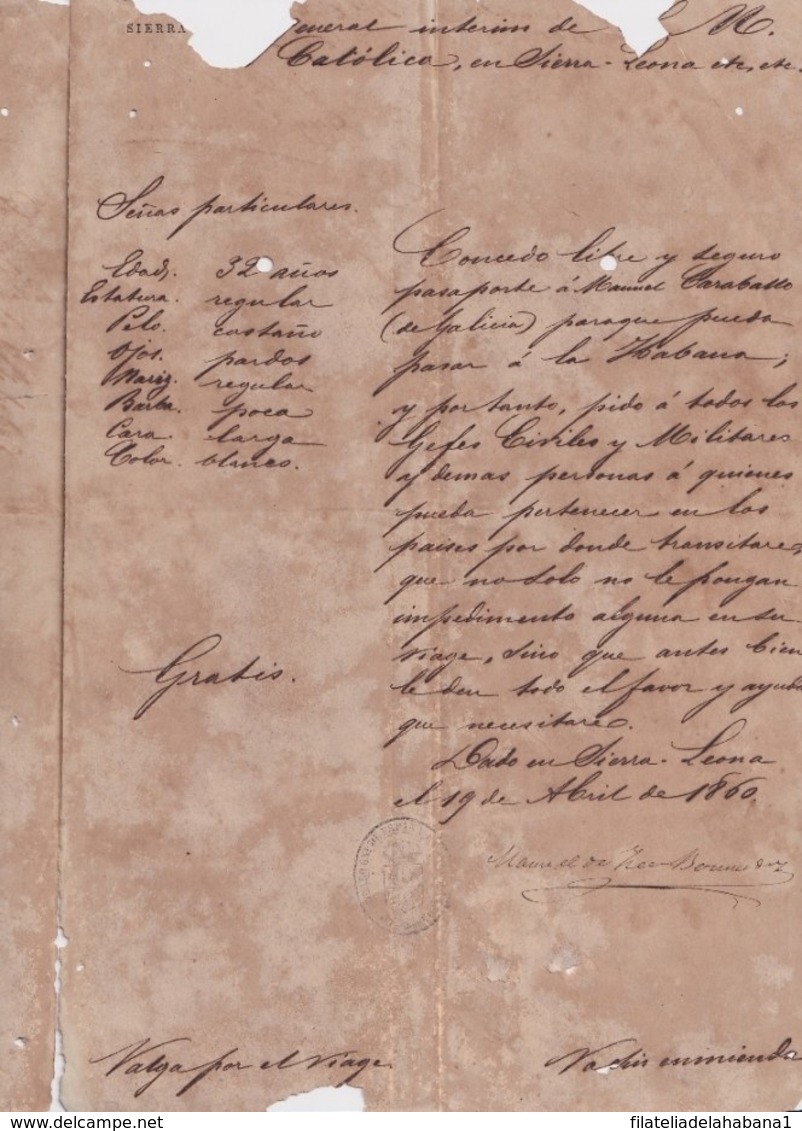 SIERRA
General interino de S. M.
Católica, en Sierra-Leona etc, etc.
Señas particulares.
Edad. 32 años
Estatura. regular
Pelo. castaño
Ojos. pardos
Nariz. regular
Barba. poca
Cara. larga
Color. blanco.
Gratis.
Concedo libre y seguro
pasaporte á Manuel Caraballo
(de Galicia) paraque pueda
pasar á la Habana;
y por tanto, pido á todos los
Gefes Civiles y Militares
y demas personas á quienes
pueda pertenecer en los
paises por donde transitare,
que no solo no le pongan
impedimento alguno en su
viage, sino que antes bien
le den todo el favor y ayuda
que necesitare.
Dado en Sierra-Leona
el 19 de Abril de 1860.
Manuel de
Valga por el viage
Va sin enmienda
filateliadelahabana1